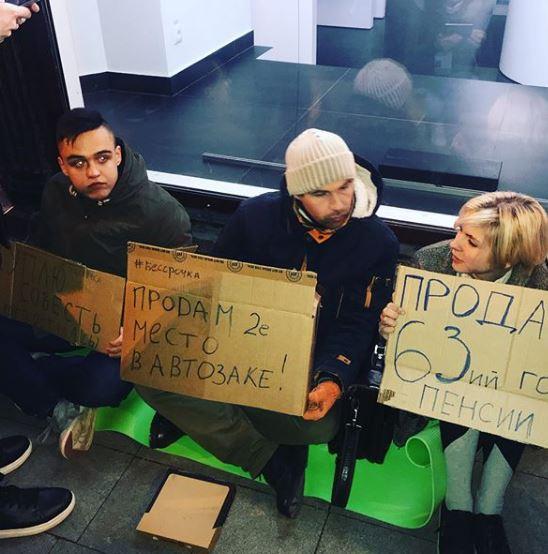 СОВЕСТЬ
#Бессрочка
ПРОДАМ 2е
МЕСТО
В АВТОЗАКЕ!
ПРОДА
63ий го
- ПЕНСИИ